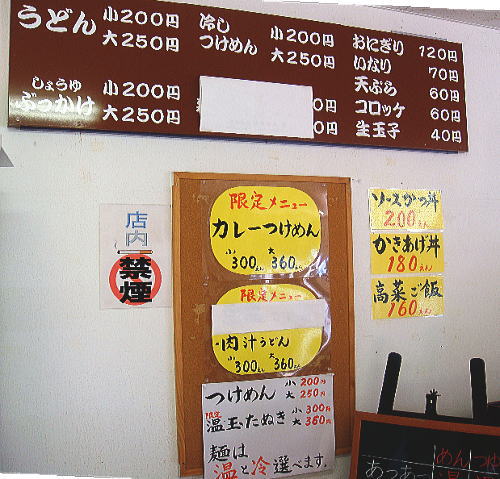 うどん 小200円
大250円
しょうゆ
ぶっかけ 小200円
大250円
冷し
つけめん 小200円
大250円
0円
0円
おにぎり 120円
いなり 70円
天ぷら 60円
コロッケ 60円
生玉子 40円
店内
禁煙
限定メニュー
カレーつけめん
小 大
300えん 360えん
限定メニュー
肉汁うどん
小 大
300えん 360えん
つけめん 小 200円
大 250円
限定
温玉たぬき 小 300円
大 360円
麺は
温と冷選べます。
ソースかつ丼
200えん
かきあげ丼
180えん
高菜ご飯
160えん
めんつゆ
あつあつ